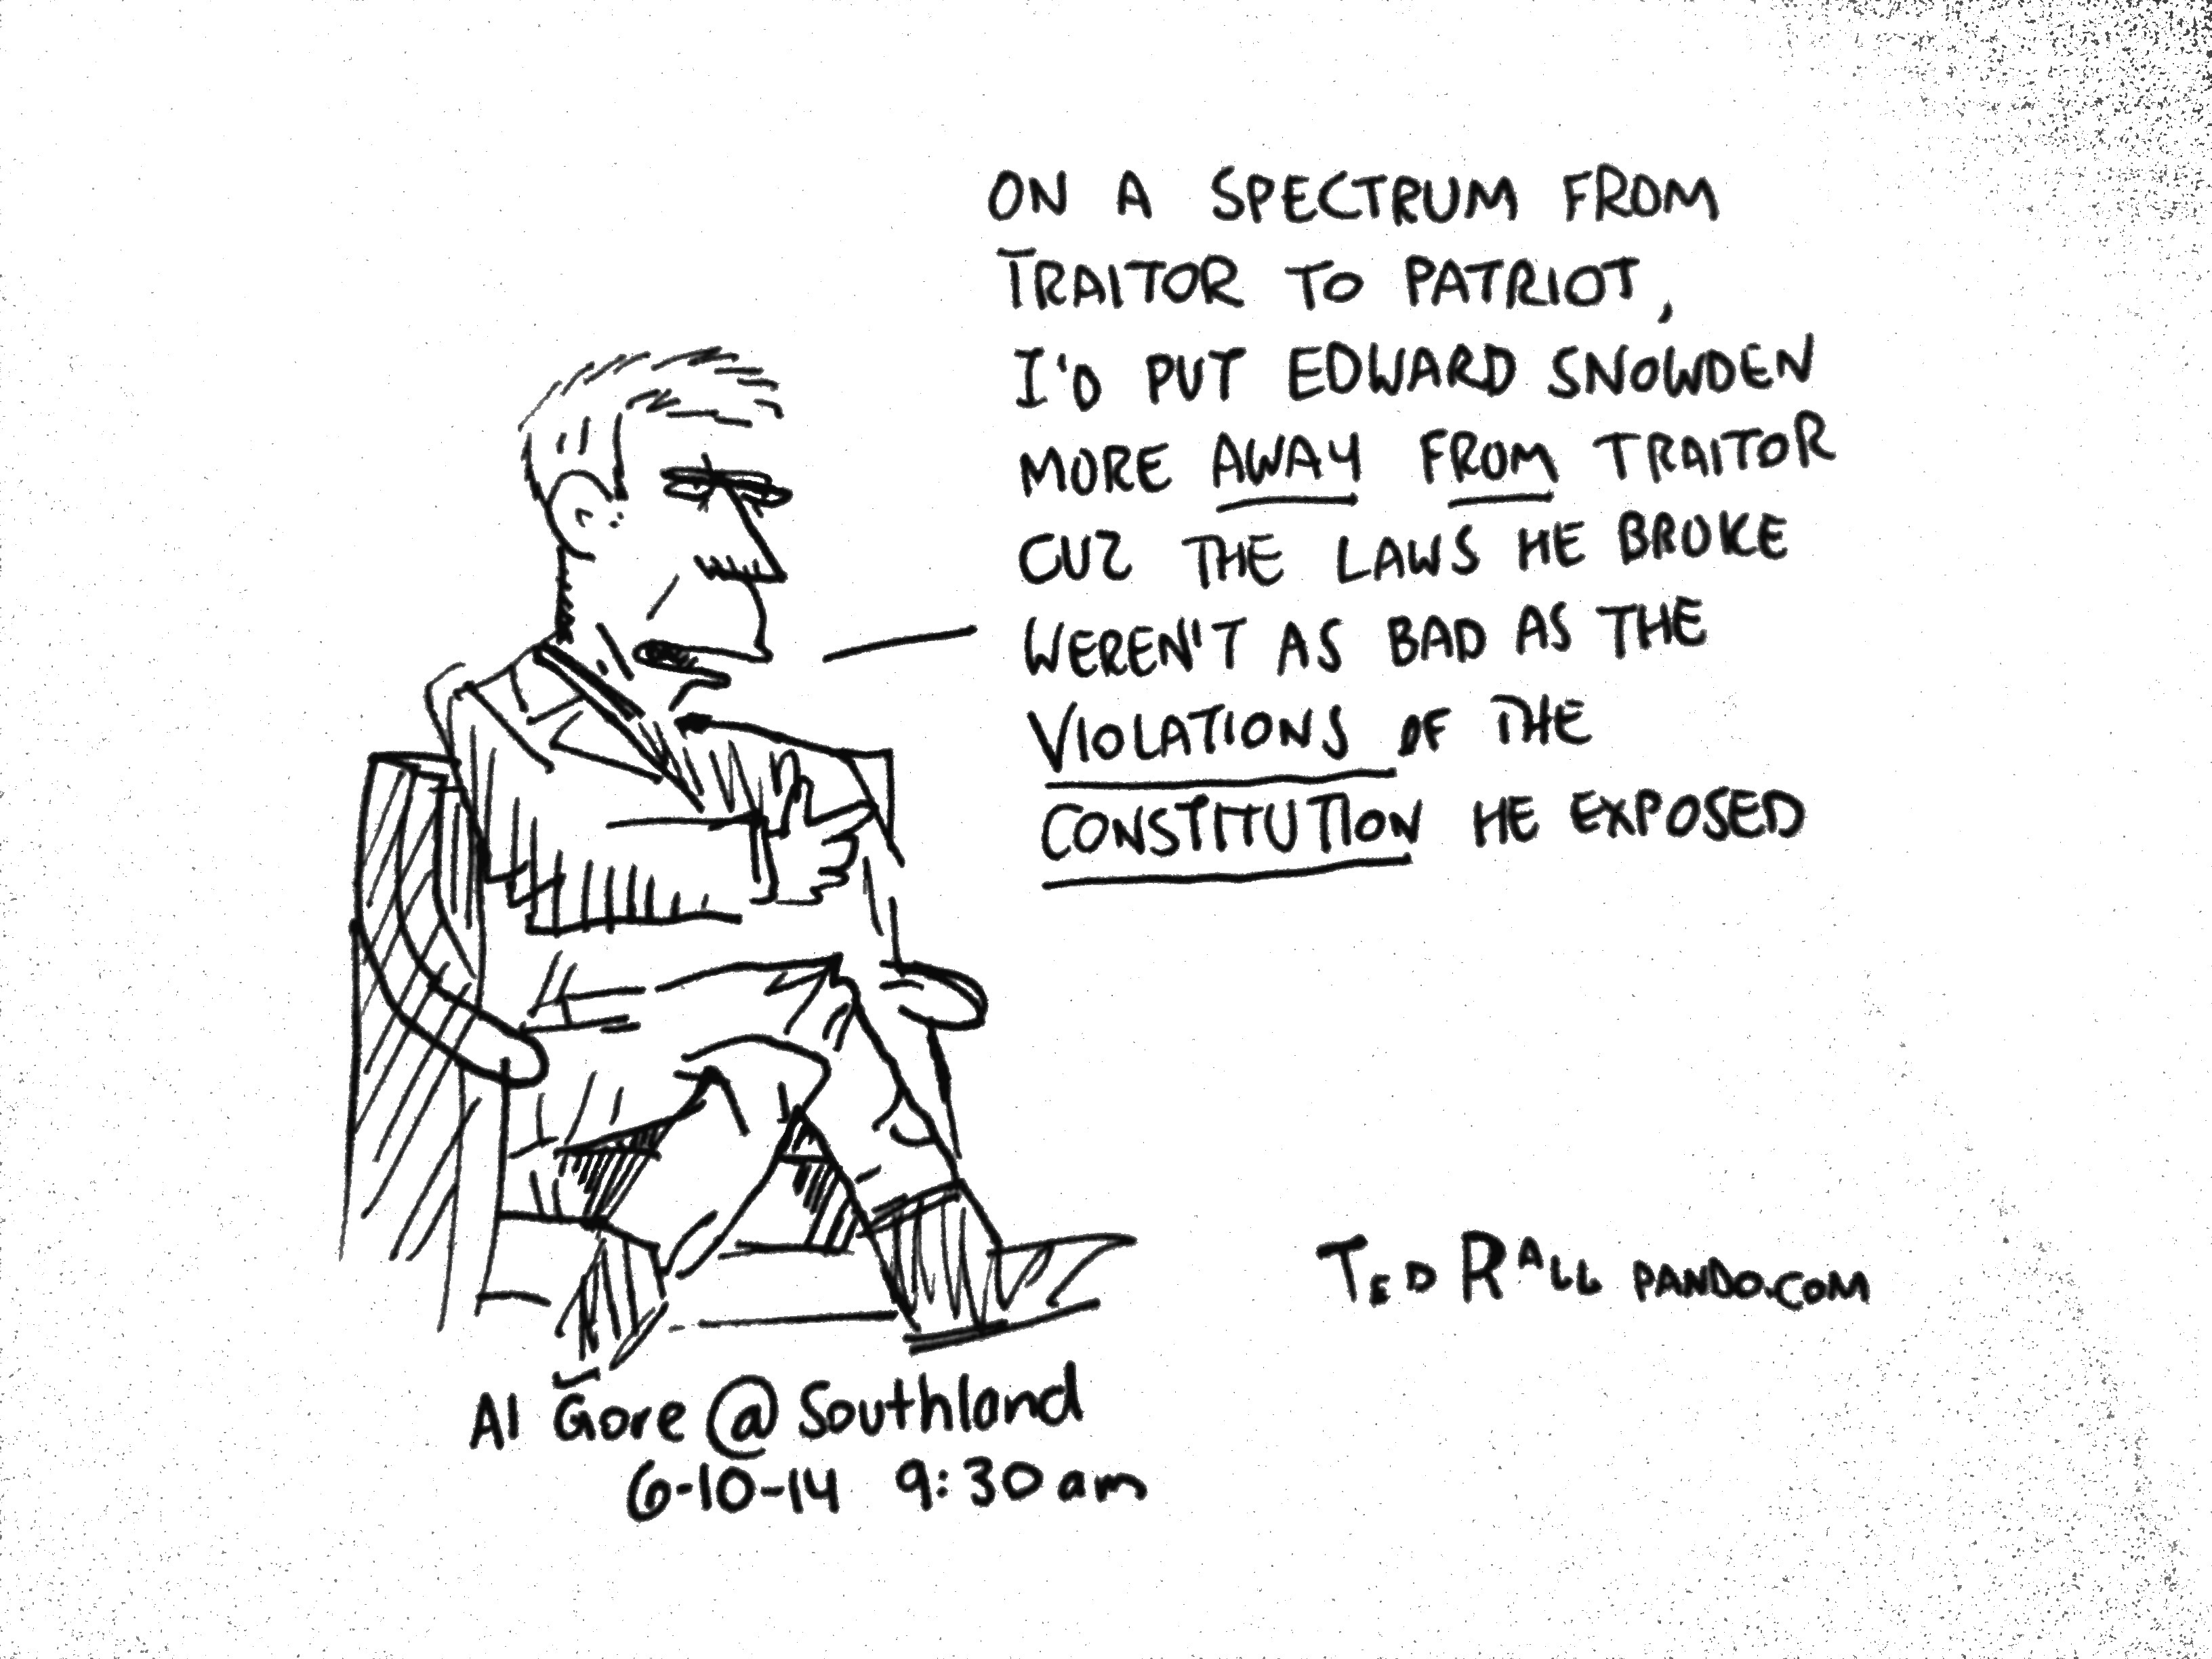 ON A SPECTRUM FROM
TRAITOR TO PATRIOT,
I'D PUT EDWARD SNOWDEN
MORE AWAY FROM TRAITOR
CUZ THE LAWS HE BROKE
WEREN'T AS BAD AS THE
VIOLATIONS OF THE
CONSTITUTION HE EXPOSED
TED RALL PANDO.COM
Al Gore @ Southland
6-10-14 9:30 am